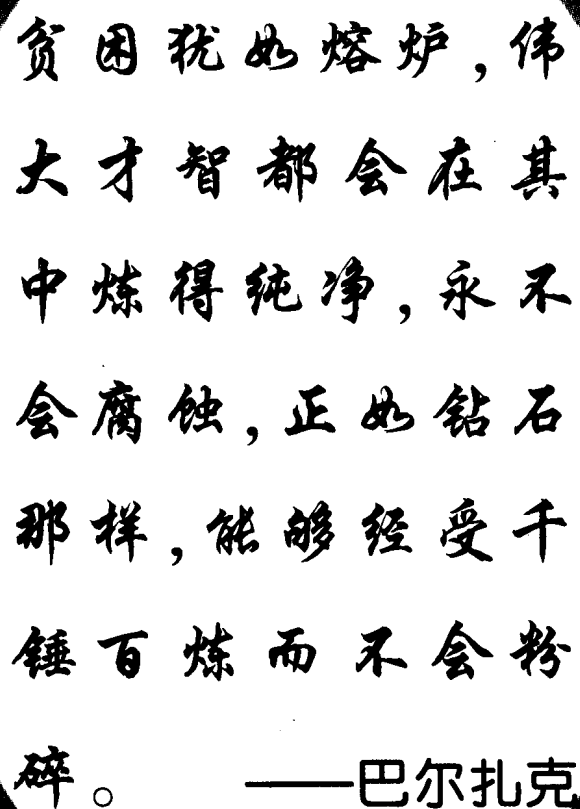 贫困犹如熔炉,伟
大才智都会在其
中炼得纯净,永不
会腐蚀,正如钻石
那样,能够经受千
锤百炼而不会粉
碎。——巴尔扎克